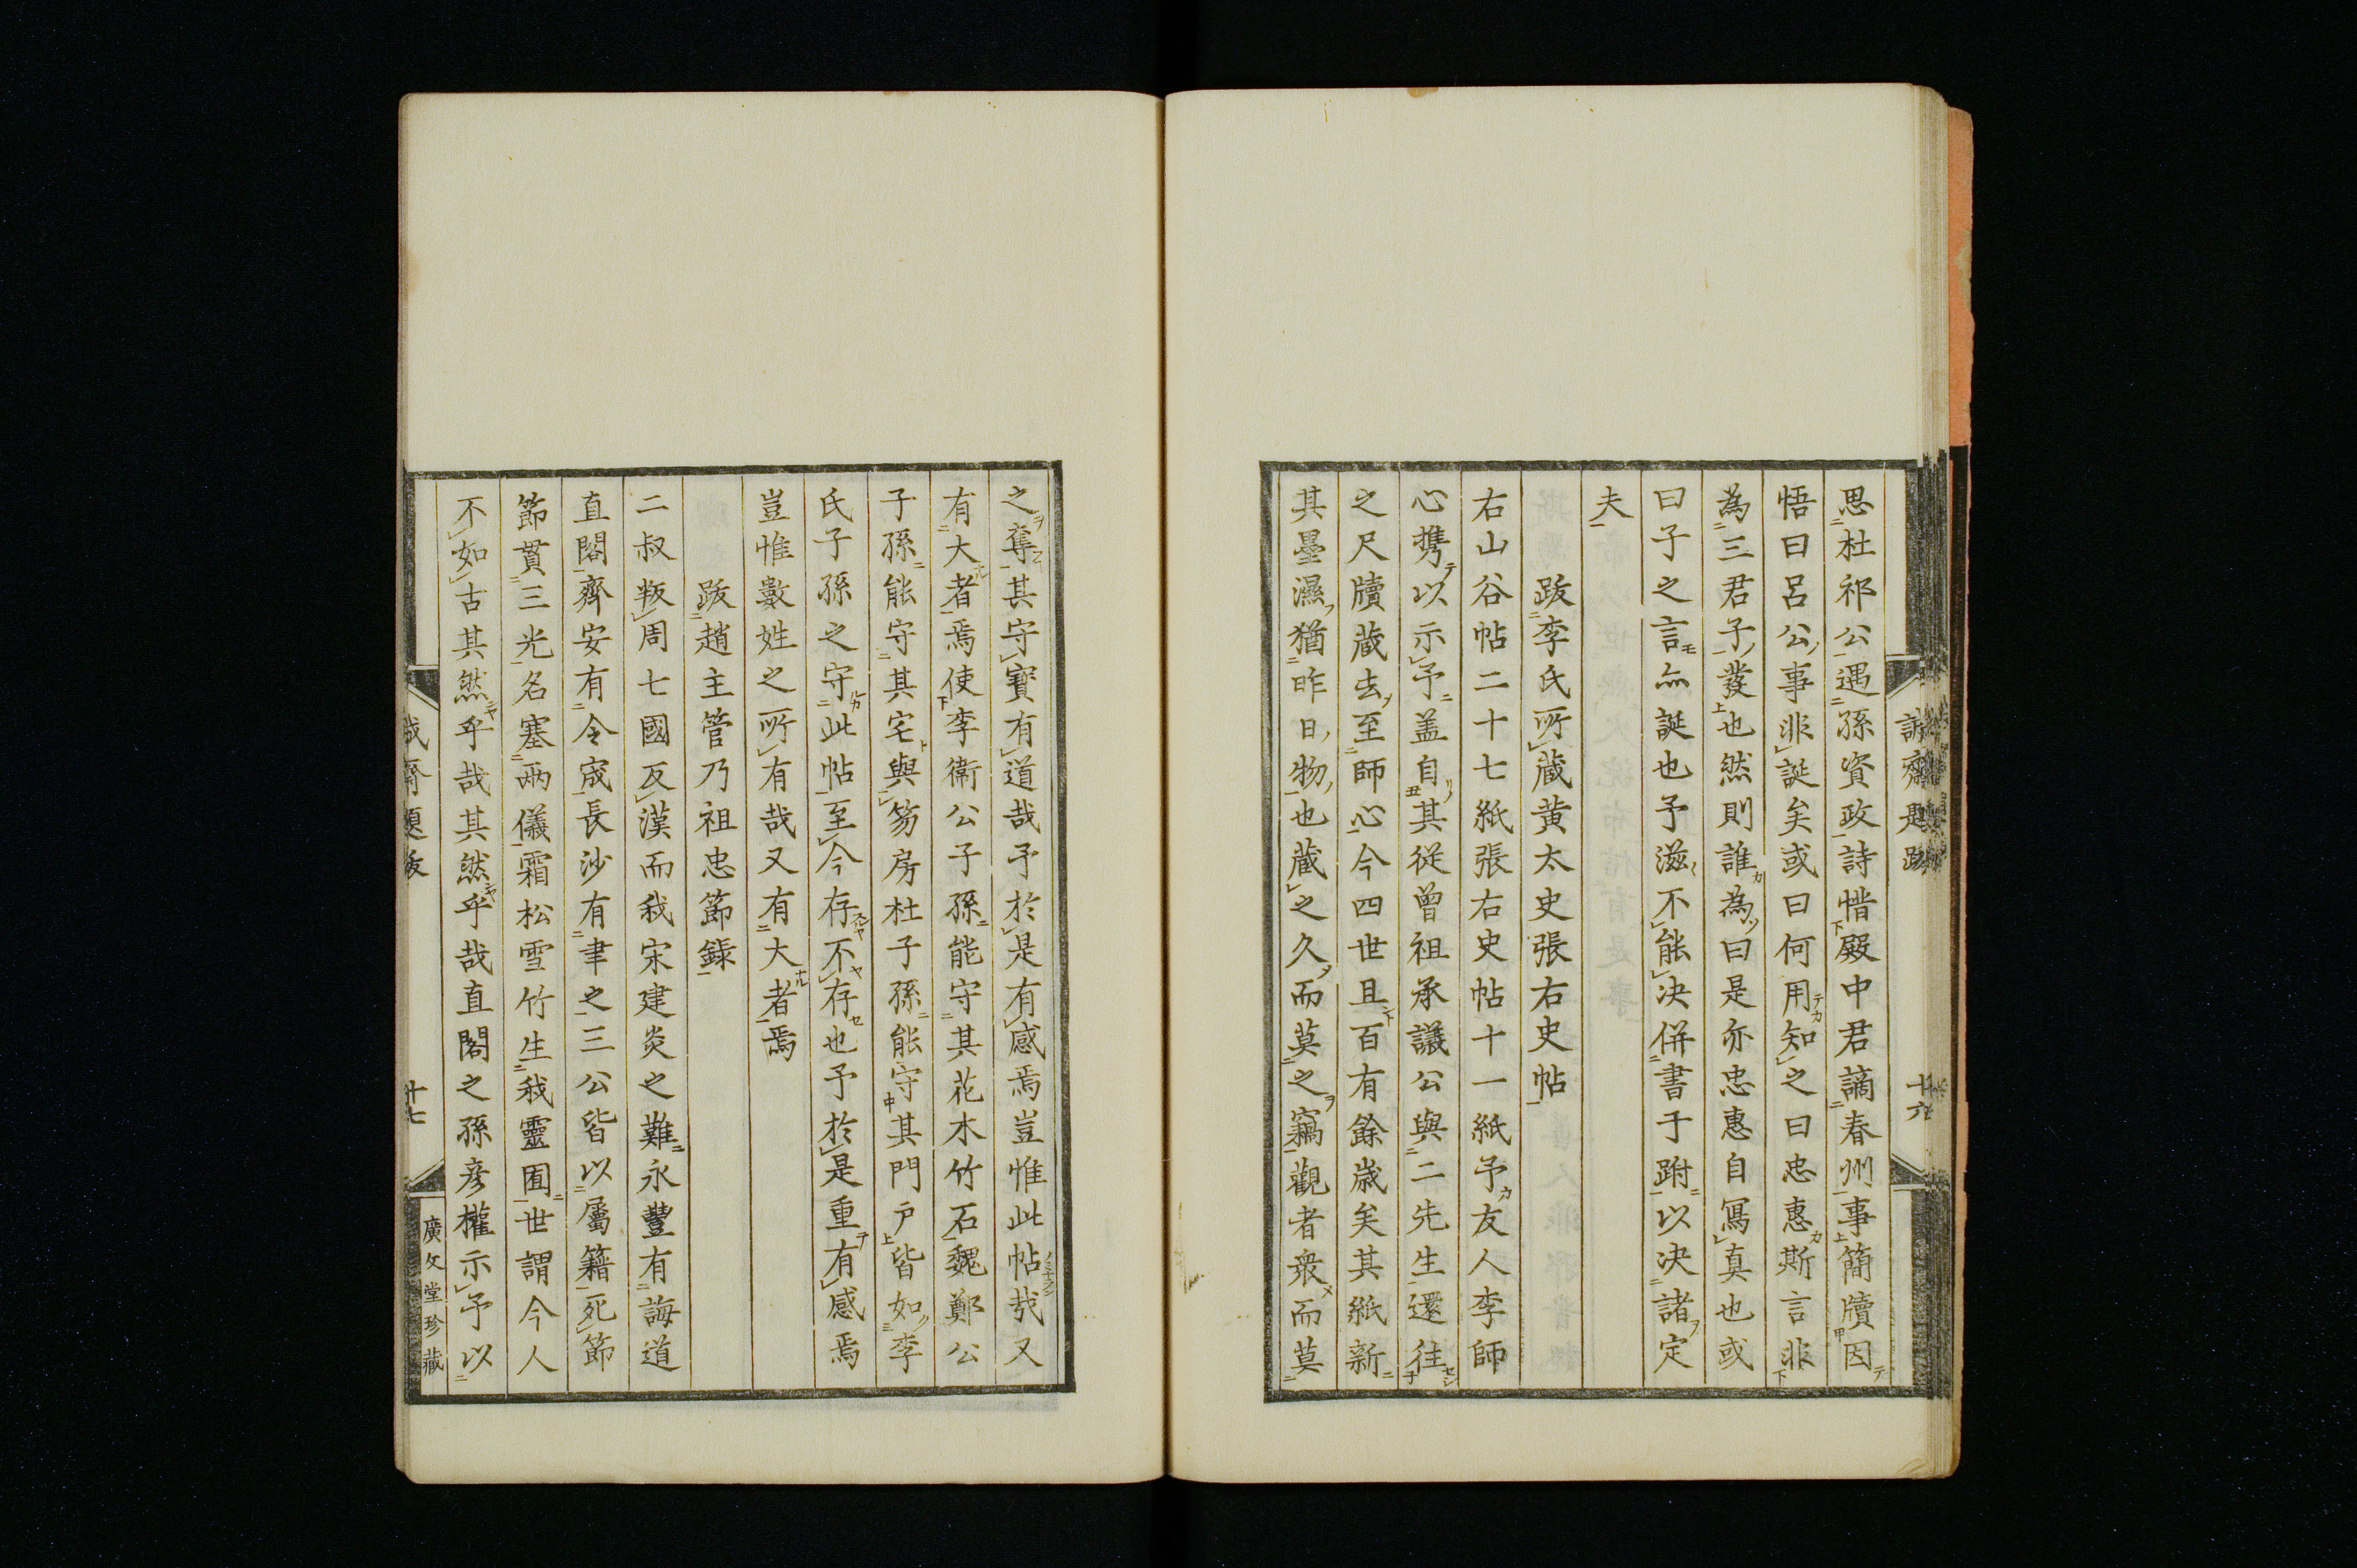 思杜祁公遇孫資政詩惜殿中君謫春州事簡牘因
悟曰呂公事非誕矣或曰何用知之曰忠惠斯言非
為三君子發也然則誰為曰是亦忠惠自寫真也或
曰子之言無誕也予滋不能决併書于跗以决諸定
夫
跋李氏所蔵黄太史張右史帖
右山谷帖二十七紙張右史帖十一紙予友人李師
心携以示予盖自其從曾祖承議公與二先生還往
之尺牘蔵去至師心今四世且百有餘歳矣其紙新
其墨濕猶昨日物也蔵之久而莫之竊觀者衆而莫
之奪其守寶有道哉予於是有感焉豈惟此帖哉又
有大者焉使李衛公子孫能守其花木竹石魏鄭公
子孫能守其宅與笏房杜子孫能守其門戸皆如李
氏子孫之守此帖至今存不存也予於是重有感焉
豈惟數姓之所有哉又有大者焉
跋趙主管乃祖忠節錄
二叔叛周七國反漢而我宋建炎之難永豐有誨道
直閣齊安有令宬長沙有聿之三公皆以屬籍死節
節貫三光名塞兩儀霜松雪竹生我靈囿世謂今人
不如古其然乎哉其然乎哉直閣之孫彦櫂示予以
誠齋題跋
十六
誠齋題跋
十七
廣文堂珍藏